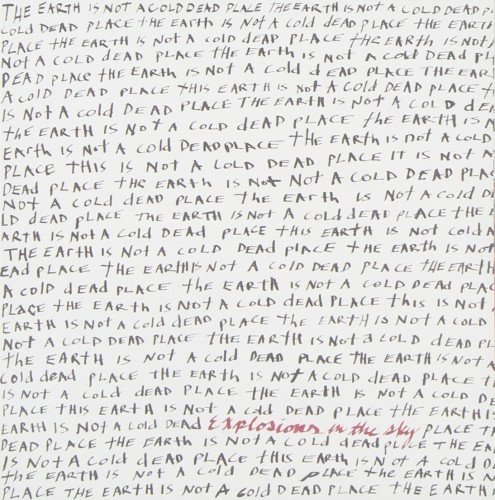 THE EARTH IS NOT A COLD DEAD PLACE THE EARTH IS NOT A COLD DEAD P
COLD DEAD PLACE THE EARTH IS NOT A COLD DEAD PLACE THE EARTH
PLACE THE EARTH IS NOT A COLD DEAD PLACE THE EARTH IS NOT
NOT A COLD DEAD PLACE THE EARTH IS NOT A COLD DEAD PL
DEAD PLACE THE EARTH IS NOT A COLD DEAD PLACE THE EAR
A COLD DEAD PLACE THIS EARTH IS NOT A COLD DEAD PLACE
IS NOT A COLD DEAD PLACE THE EARTH IS NOT A COLD DE
THE EARTH IS NOT A COLD DEAD PLACE THE EARTH IS N
EARTH IS NOT A COLD DEAD PLACE THE EARTH IS NOT A COLD
PLACE THIS IS NOT A COLD DEAD PLACE IT IS NOT
DEAD PLACE THE EARTH IS NOT NOT A COLD DEAD PLAC
NOT A COLD DEAD PLACE THE EARTH IS NOT A COLD D
LD DEAD PLACE THE EARTH IS NOT A COLD DEAD PLACE THE
ARTH IS NOT A COLD DEAD PLACE THIS EARTH IS NOT COLD
THE EARTH IS NOT A COLD DEAD PLACE THE EARTH IS NOT
EAD PLACE THE EARTH IS NOT A COLD DEAD PLACE THE EARTH
A COLD DEAD PLACE THE EARTH IS NOT A COLD DEAD PLAC
PLACE THE EARTH IS NOT A COLD DEAD PLACE THIS IS NOT
EARTH IS NOT A COLD DEAD PLACE THE EARTH IS NOT A COLD
NOT A COLD DEAD PLACE THE EARTH IS NOT A COLD DEAD PL
THE EARTH IS NOT A COLD DEAD PLACE THE EARTH IS NOT A
COLD DEAD PLACE THE EARTH IS NOT A COLD DEAD PLACE
IS NOT A COLD DEAD PLACE THE EARTH IS NOT A COLD DE
PLACE THIS EARTH IS NOT A COLD DEAD PLACE THE EARTH IS
EARTH IS NOT A COLD DEAD Explosions in the sky PLACE
DEAD PLACE THE EARTH IS NOT A COLD DEAD PLACE THE EA
IS NOT A COLD DEAD PLACE THIS EARTH IS NOT A COLD
THE EARTH IS NOT A COLD DEAD PLACE THE EARTH IS N
PLACE THE EARTH IS NOT A COLD DEAD PLACE THE EARTH